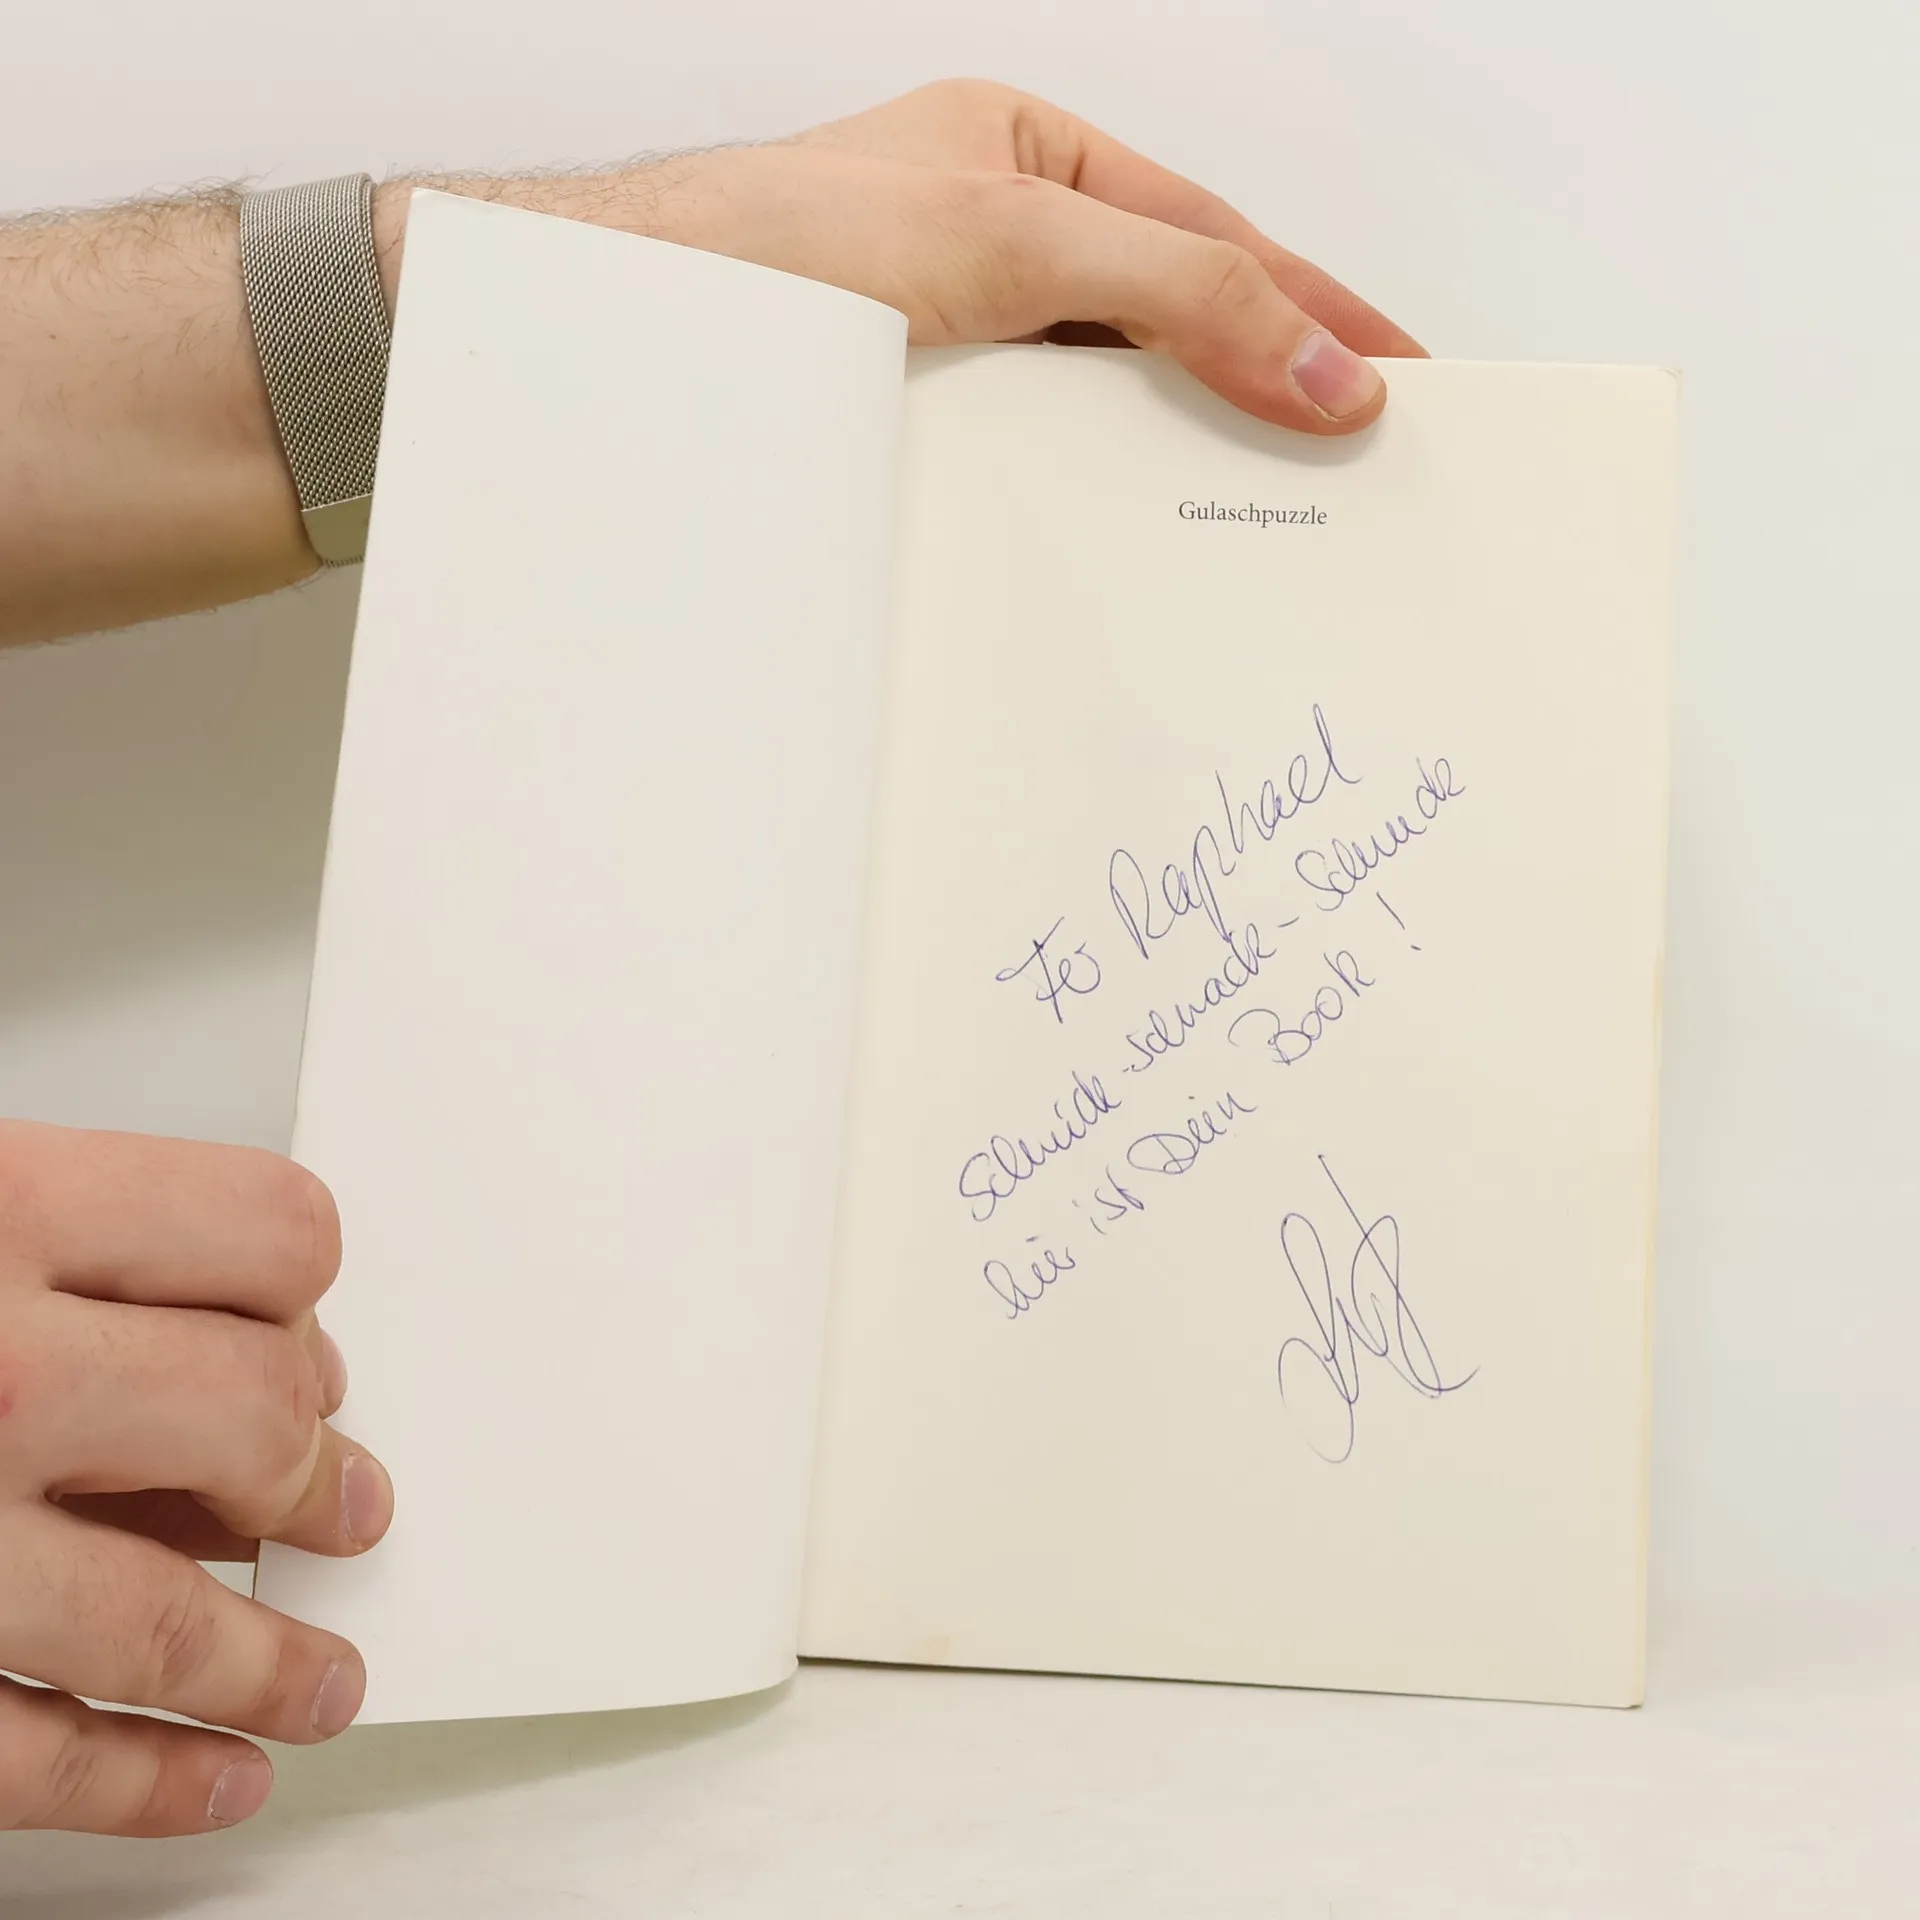 Gulaschpuzzle
For Raphael
Schnick-schnack-Schnuck
hier ist Dein Book!